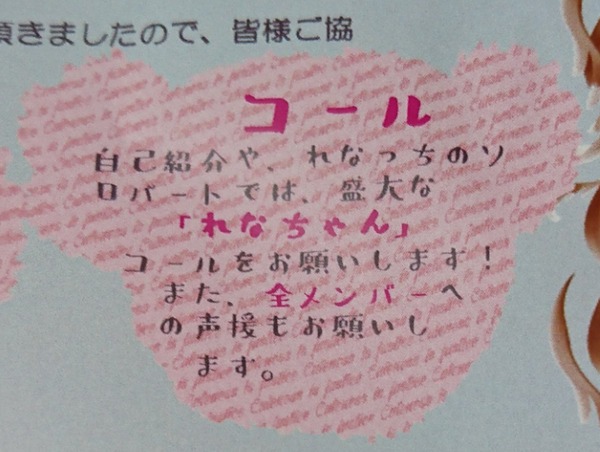 頂きましたので、皆様ご協
コール
自己紹介や、れなっちのソ
ロパートでは、盛大な
「れなちゃん」
コールをお願いします!
また、全メンバーへ
の声援もお願いし
ます。